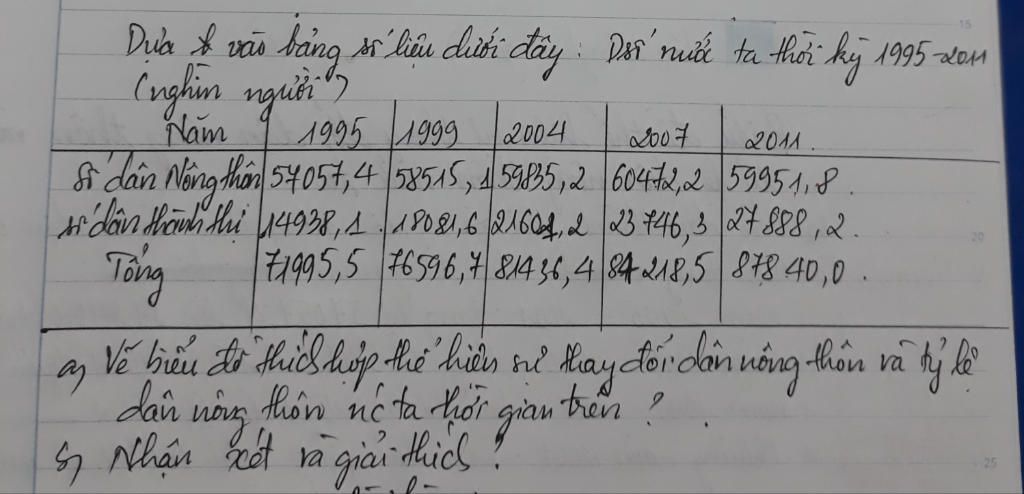 Dựa vào bảng số liệu dưới đây: Dsố nước ta thời kỳ 1995-2011
(nghìn người)
Năm 1995 1999 2004 2007 2011.
Số dân Nông thôn 57057,4 58515,1 59835,2 60472,2 59951,8.
số dân thành thị 14938,1. 18081,6 21601,2 23746,3 27888,2.
Tổng 71995,5 76596,7 81436,4 84218,5 87840,0.
a, Vẽ biểu đồ thích hợp thể hiện sự thay đổi dân nông thôn và tỷ lệ
dân nông thôn nc ta thời gian trên?
b, Nhận xét và giải thích?
15
20
25